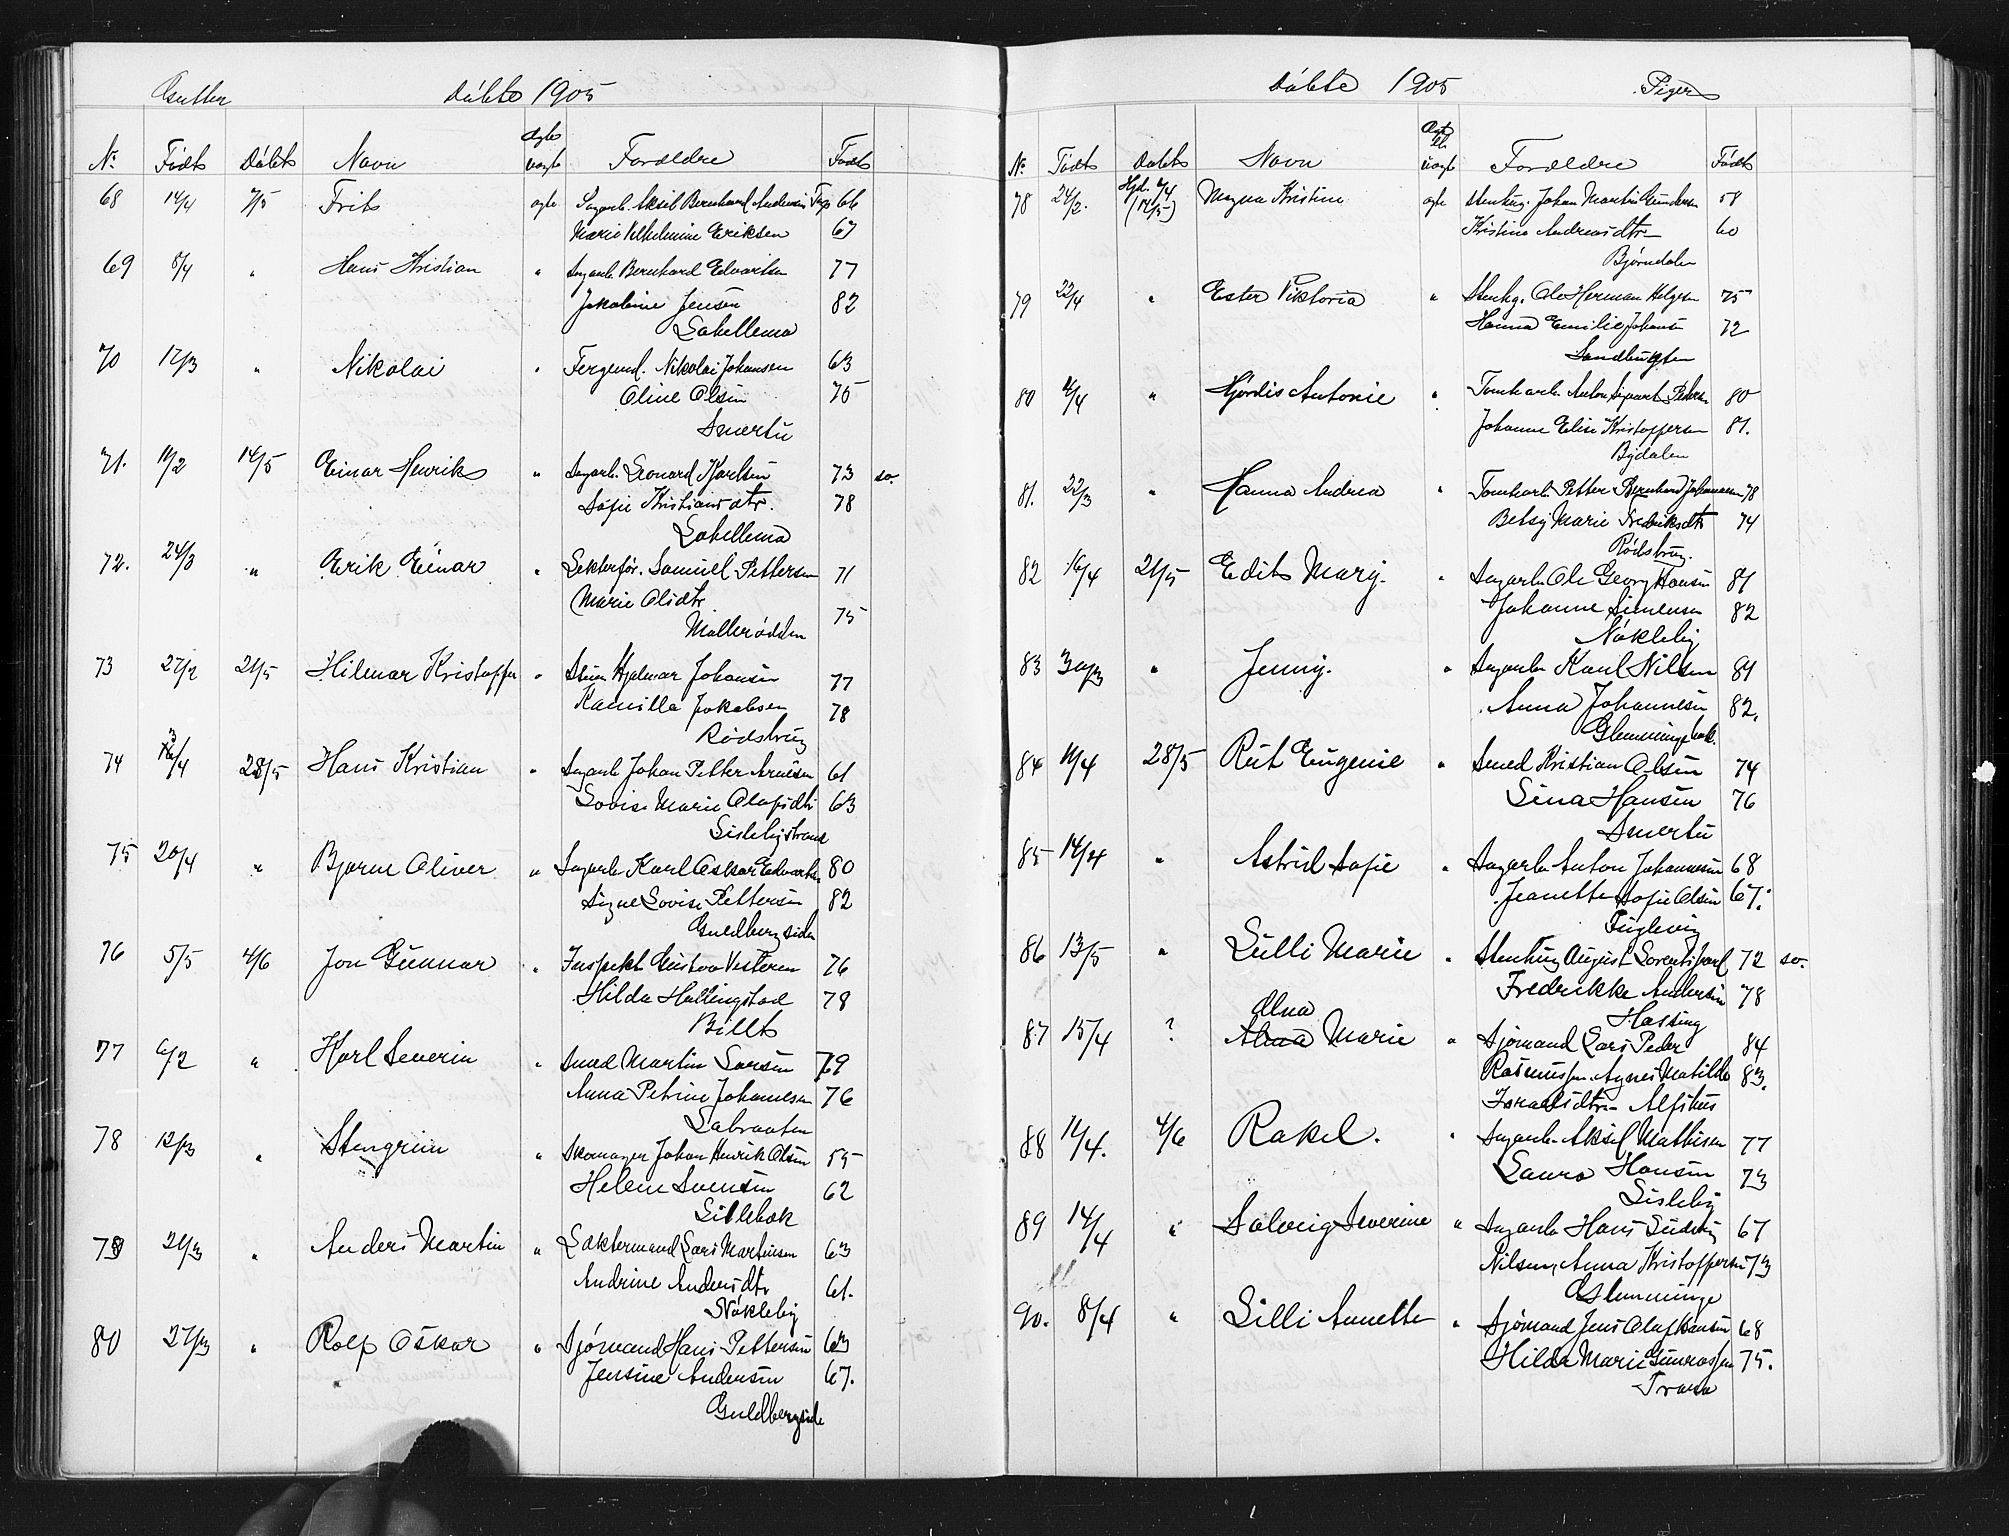 Gutter Døbte 1905
Ægte
No Født Døbt Navn uægte Forældre Født
68 14/4 7/5 Frits ægte Dagarb. Aksel Bernhard Andersen 66
Marie Vilhelmine Eriksen 67
69 8/4 " Hans Kristian " Dagarb. Bernhard Edvartsen 77
Jakobine Jensen 82
Labellema
70 12/3 " Nikolai " Fergemd. Nikolai Johansen 63
Oline Olsen 75
Smertu
71. 14/5 Einar Henrik " Dagarb. Leonard Karlsen 73 so.
Sofie Kristiansdtr. 78
Labellema
72. 24/3 " Erik Einar " Lekterfør. Samuel Pettersen 71
Marie Olsdtr 75
Mollerødden
73 27/2 21/5 Hilmar Kristoffer " Hjalmar Johansen 77
Kamilla Jakobsen 78
Rødsbrug
74 28/5 Hans Kristian " Dagarb Johan Petter Arnesen 61
Lovise Marie Olafsdtr 63
Lislebystrand
75 20/4 " Bjarne Oliver " Dagarb Karl Oskar Edvartsen 80
Signe Lovise Pettersen 82
Guldbergsiden
76 5/5 4/6 Jon Gunnar " Inspekt. Gustav Vesteren 76
Hilda Hellingstad 78
Billts
77 6/2 " Karl Severin " Smed Martin Larsen 79
Anna Petrine Johannesen 76
Labraaten
78 12/3 " Stengrim " Skomager Johan Henrik Olsen 55
Helene Svensen 62
Lillebæk
79 21/3 " Anders Martin " Lektermand Lars Martinsen 63
Andrine Andersdtr 61.
Nøkleby
80 27/3 " Rolf Oskar " Sjømand Hans Pettersen 63
Jensine Andersen 67.
Guldbergside
Døbte 1905 Piger
No Født Døbt Navn uægte Forældre Født
78 24/2. Hjd. 9/4 (14/5) Magna Kristine ægte Stenhug. Johan Martin Gundersen 58
Kristine Andreasdtr 60
Bjørndalen
79 22/4 " Ester Viktoria " Stenhg. Ole Herman Helgesen 75
Hanna Emilie Johansen 72
Sandbugten
80 4/4 " Hjørdis Antonie " Tomtearb. Anton Sigvart Petersen 80
Johanne Elise Kristoffersen 81.
Bydalen
81. 22/3 " Hanna Andrea " Tomtearb. Petter Bernhard Johannesen 78
Betsy Marie Fredriksdtr 74
Rødsbrug.
82 16/4 21/5 Edits Mary. " Dagarb. Ole Georg Hansen 81
Johanne Simensen 82
Nøkleby
83 30/3 " Jenny. " Dagarb. Karl Nilsen 81
Anna Johannesen 82.
Glemmingebæk.
84 11/4 28/5 Rut Eugenie " Smed Kristian Olsen 74
Lina Hansen 76
Smertu
85 14/4 " Astrid Sofie " Dagarb. Anton Johannesen 68
Jeanette Sofie Olsen 67.
Fuglevig
86 13/5 " Lulli Marie " Stenhug August Lorents Karl 72 so.
Fredrikke Andersen 78
Hassing
Alma
87 15/4 ? Alma Marie " Sjømand Lars Peder 84
Rasmussen. Agnes Matilde 83.
Israelsdtr. Alfshus
88 11/4. 4/6 Rakel. " Dagarb. Aksel Mathisen 77
Laura Hansen 73
Lisleby
89 14/4 " Solveig Severine " Dagarb Hans Ludvig 67
Nilsen, Anna Kristoffersen 73
Glemminge
90. 8/4 " Lilli Annette " Sjømand Jens Olaf Hansen 68
Hilda Marie Gunerassen 75.
Trara